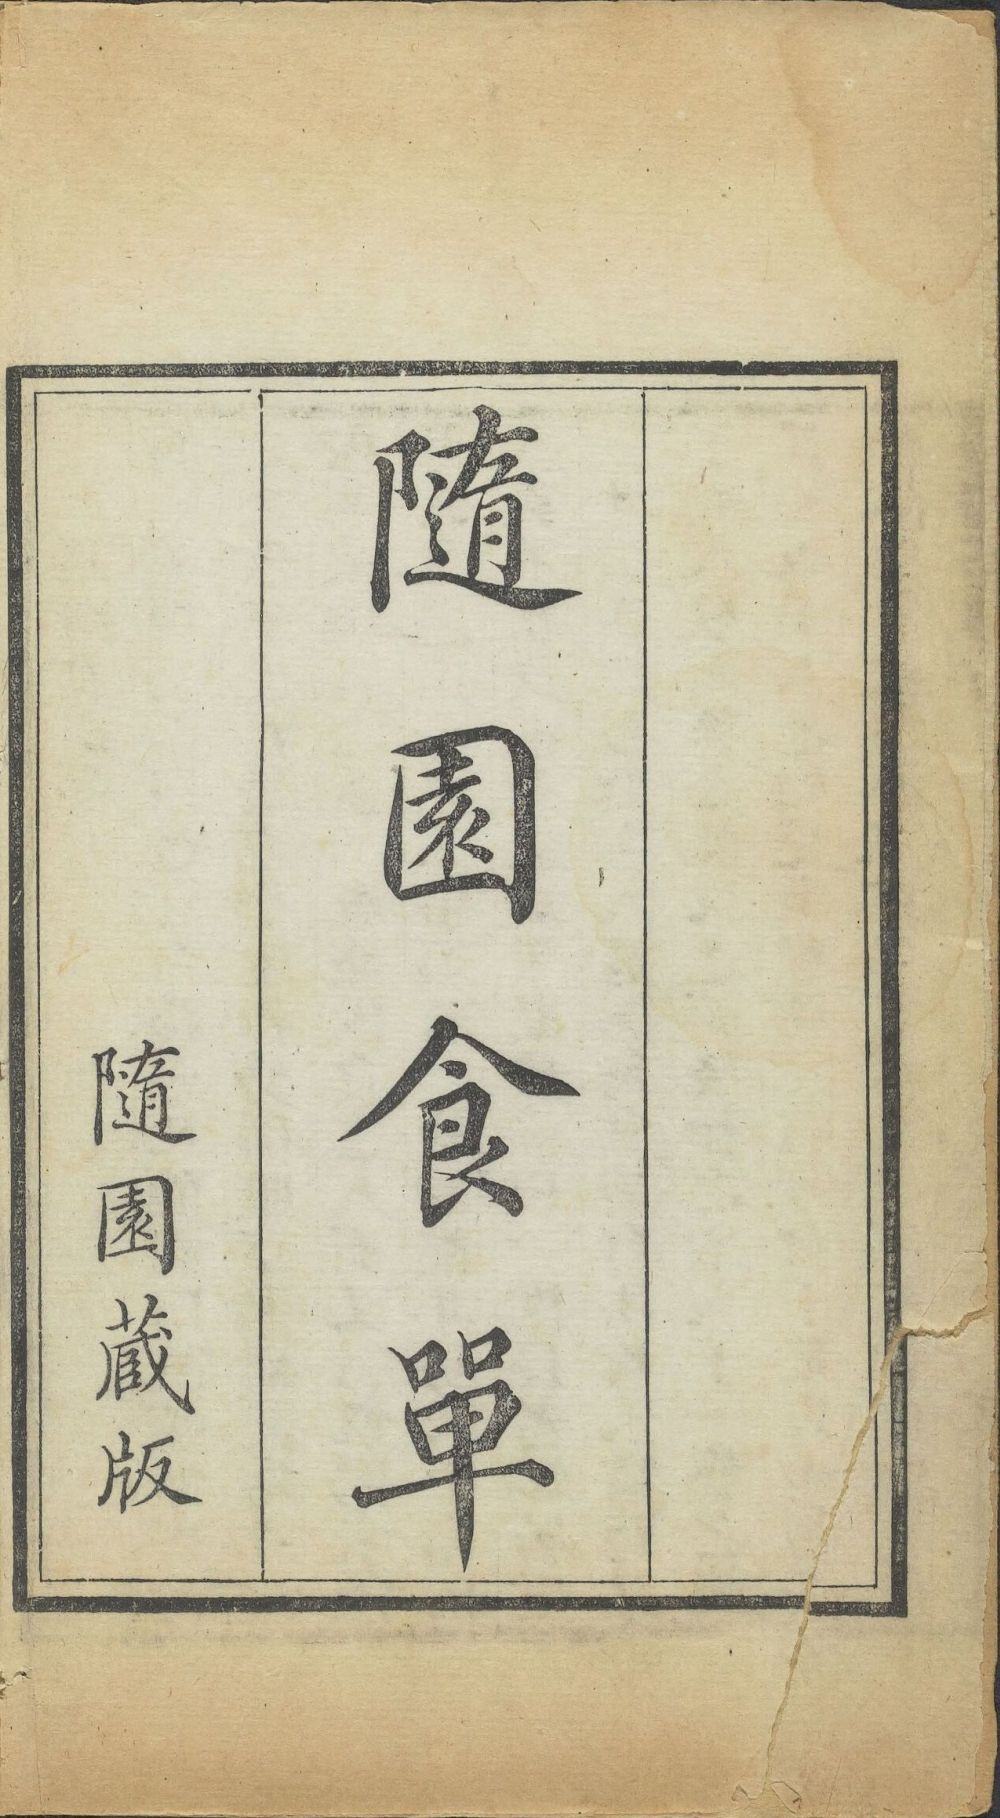 隨園食單
隨園蔵版